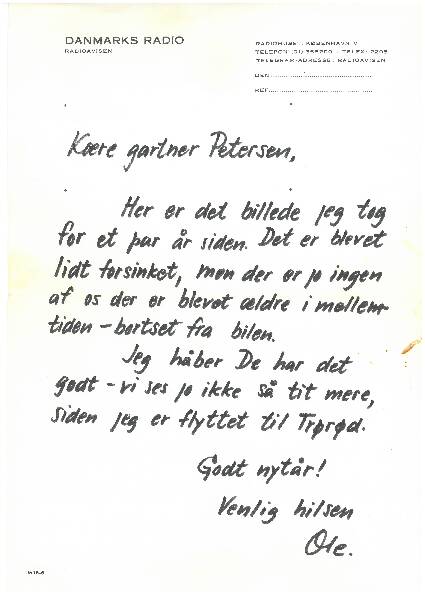 DANMARKS RADIO
RADIOAVISEN
RADIOHUSET, KØBENHAVN V
TELEGRAM-ADRESSE: RADIOAVISEN
DEN
REF.
Kære gartner Petersen,
Her er det billede jeg tog
for et par år siden. Det er blevet
lidt forsinket, men der er jo ingen
af os der er blevet ældre i mellem-
tiden - bortset fra bilen.
Jeg håber De har det
godt - vi ses jo ikke så tit mere,
siden jeg er flyttet til Trørød.
Godt nytår!
Venlig hilsen
Ole.